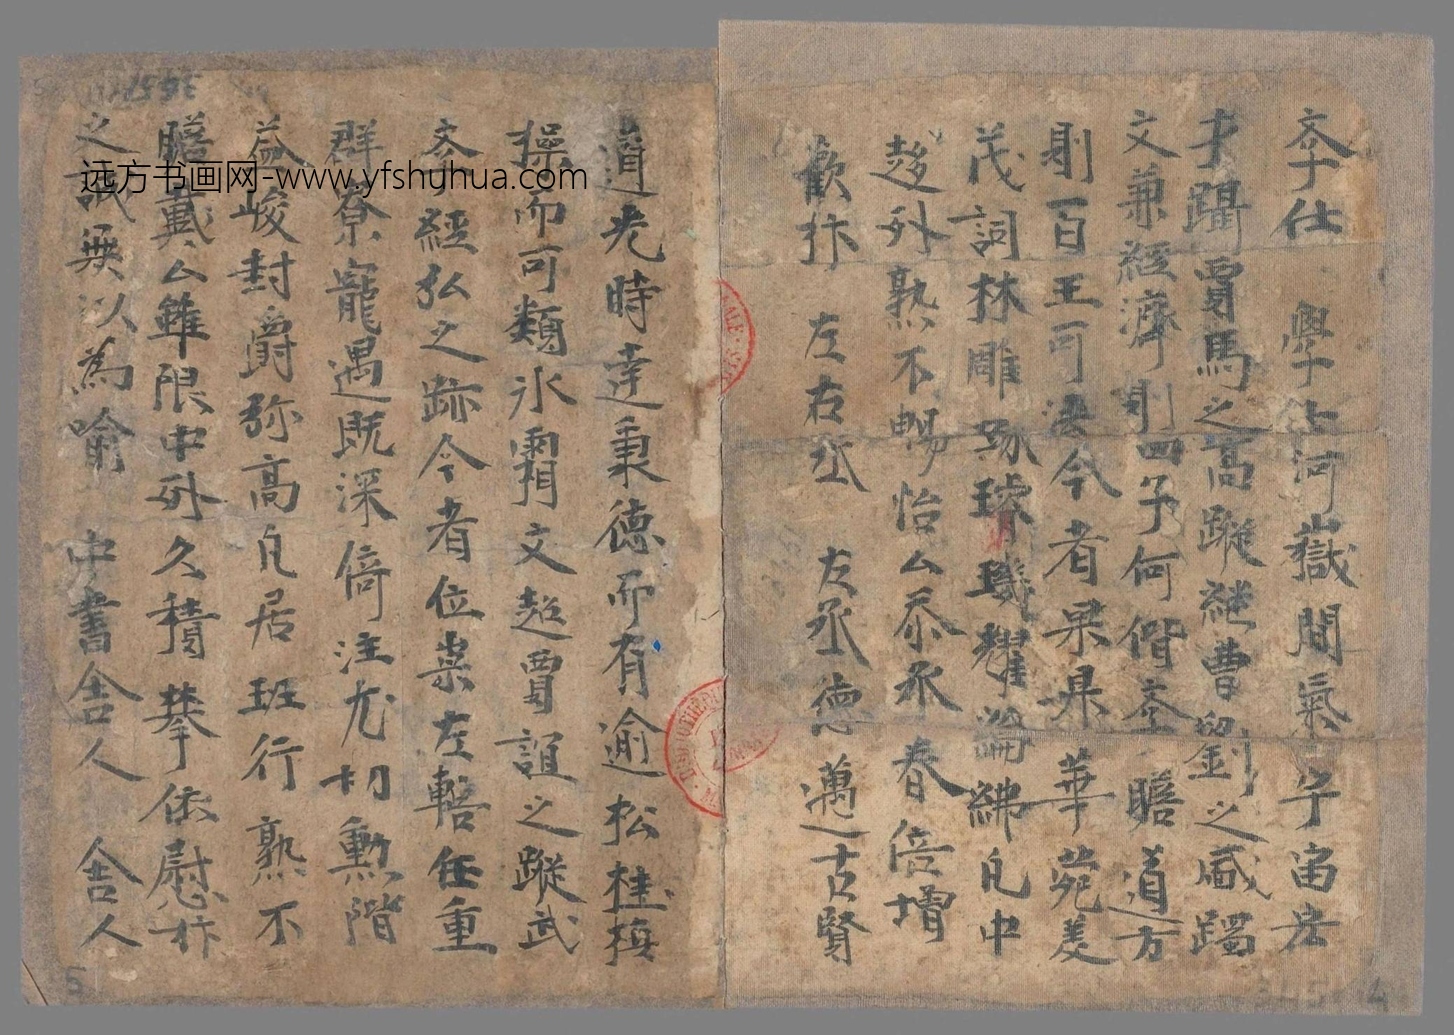 李仕 學士河嶽間氣宇宙宏
才躡賈馬之高蹤繼曹劉之盛躅
文兼經濟則四子何偕全瞻道方
則百王可
今者果昇華苑羙
茂詞林雕琢璿璣耀綸綍凡中
趍外熟不暢怡厶忝承 春倍增
歡抃 左右丞 左丞德邁古賢
道光時彦秉德而有逾松桂
操而可類氷霜文超賈誼之蹤武
夲經弘之跡今者位崇左轄任重
群寮寵遇既深倚注尤切勲階
益峻封爵弥高凡居班行熟不
瞻戴厶雖限中外久積攀依慰抃
之誠無以為喻 中書舎人 舎人
远方书画网-www.yfshuhua.com